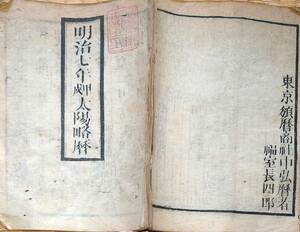 東京頒暦商社中弘暦者
福室長四郎
明治七年甲戌太陽略暦